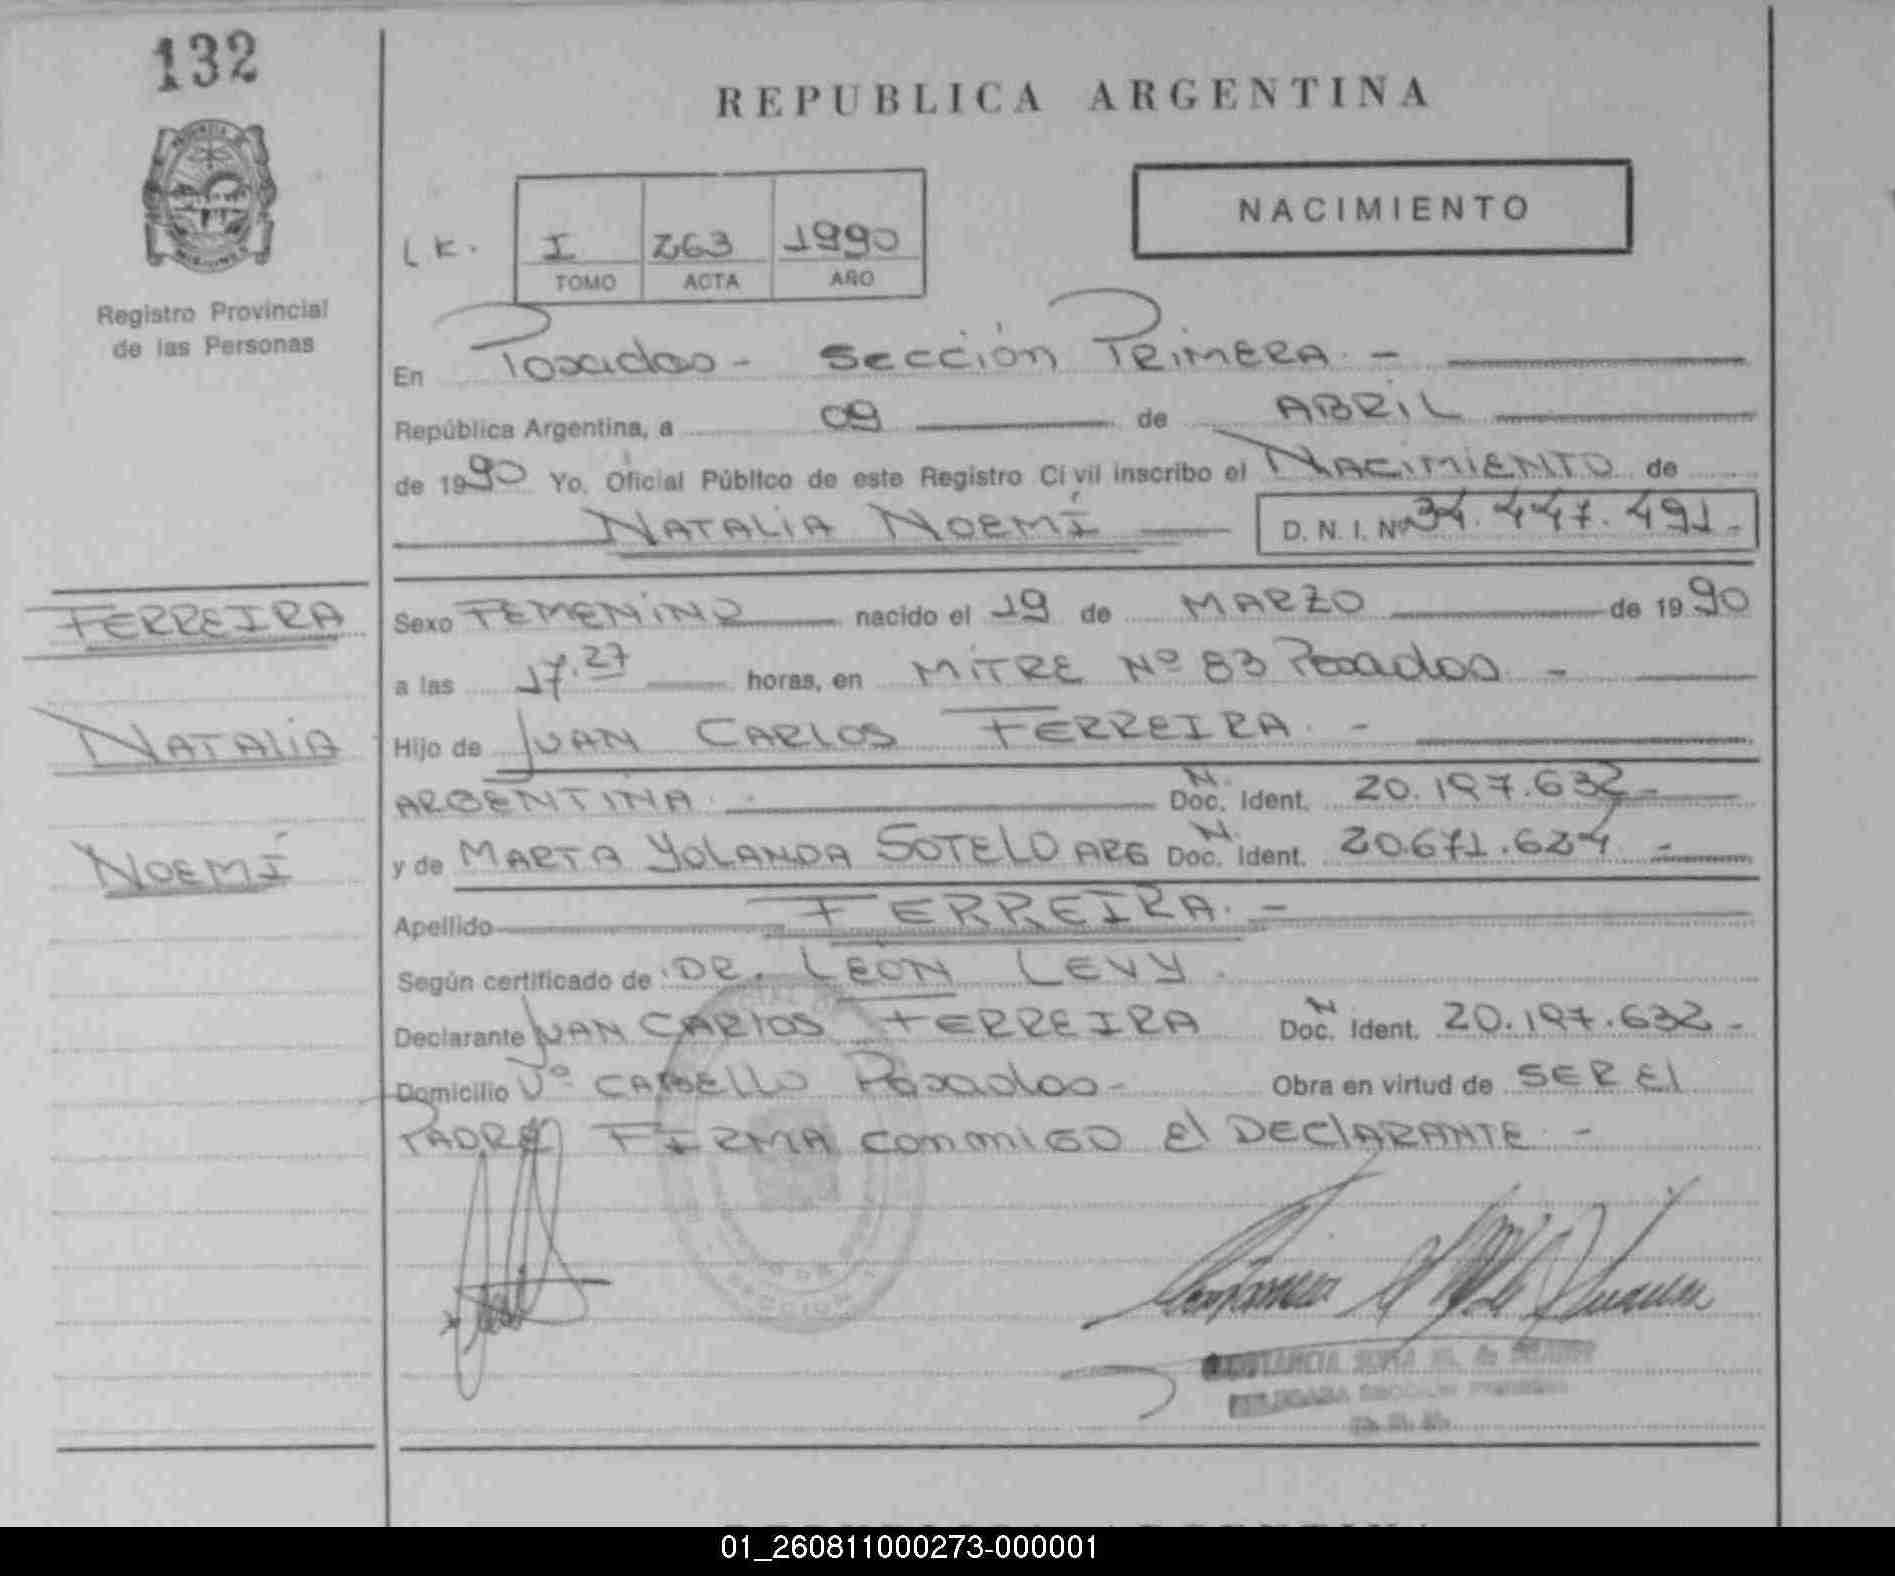 132
REPUBLICA ARGENTINA
NACIMIENTO
LK. I 263 1990
TOMO ACTA AÑO
Registro Provincial
de las Personas
En Posadas - Sección PRIMERA. -
República Argentina, a 09 de ABRIL
de 1990 Yo. Oficial Público de este Registro Civil inscribo el NACIMIENTO de
NATALIA NOEMÍ D. N. I. Nº 34.447.491-
FERREIRA
Sexo FEMENINO nacido el 19 de MARZO de 1990
a las 17.27 horas, en MITRE Nº 83 Posadas -
NATALIA
Hijo de JUAN CARLOS FERREIRA. -
ARGENTINA. N. Doc. Ident. 20.197.632-
NOEMÍ
y de MARTA YOLANDA SOTELO ARG N. Doc. Ident. 20.671.624 -
Apellido FERREIRA. -
Según certificado de DR. LEON LEVY.
Declarante JUAN CARLOS FERREIRA N Doc. Ident. 20.197.632-
Domicilio Vº CABELLO Posadas- Obra en virtud de SER El
PADRE FIRMA conmigo El DEClARANTE. -
01_260811000273-000001